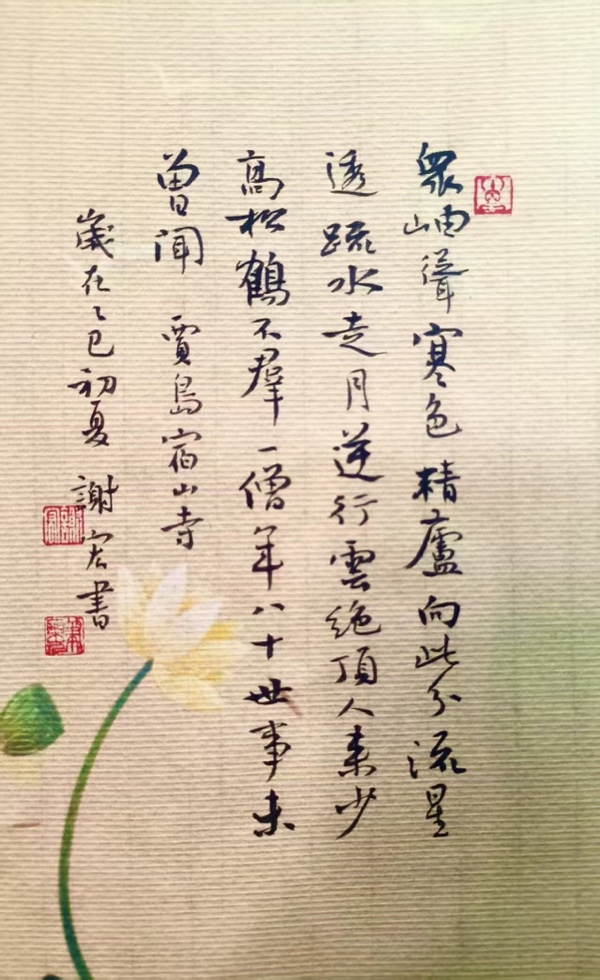 眾岫聳寒色精廬向此分流星
透疏水走月逆行雲絕頂人來少
高松鶴不羣一僧年八十世事未
曾聞 賈島宿山寺
歲在乙巳初夏 謝宏書